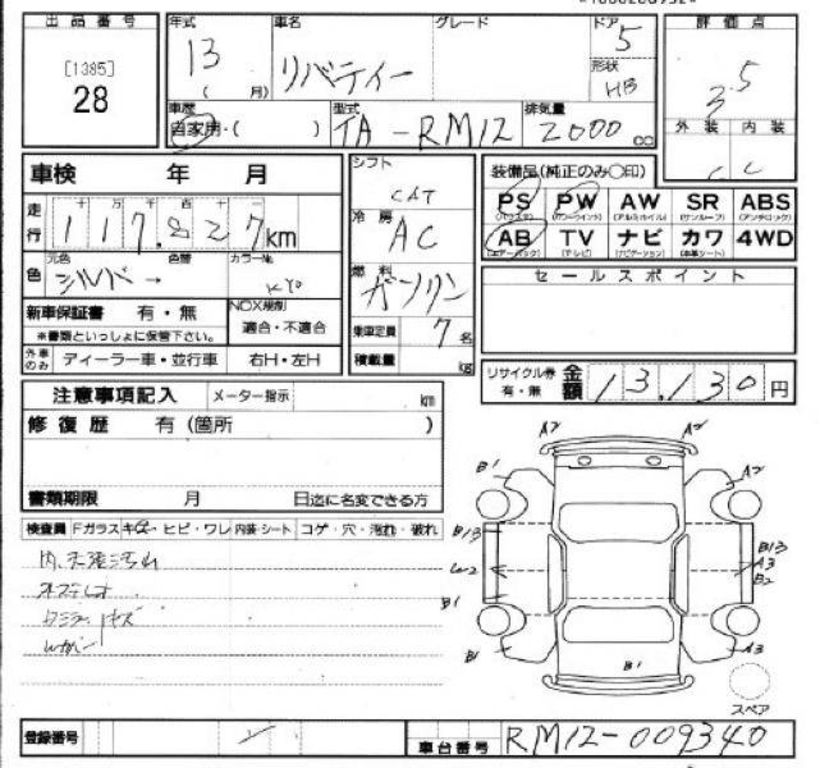 出品番号
[1385]
28
年式
13
( 月)
車名
リバティー
グレード
ドア
5
形状
HB
評価点
3.5
外装 内装
C C
車歴
自家用・( )
型式
TA-RM12
排気量
2000 cc
車検 年 月
走行
十 万 千 百 十 一
117,827 km
色
元色
シルバー
色替
→
カラーNo.
KY0
新車保証書 有・無
※書類といっしょに保管下さい。
NOX規制
適合・不適合
外車のみ
ディーラー車・並行車 右H・左H
シフト
CAT
冷房
AC
燃料
ガソリン
乗車定員
7 名
積載量
kg
装備品(純正のみ○印)
PS PW AW SR ABS
AB TV ナビ カワ 4WD
セールスポイント
リサイクル券
有・無
金額
13,130 円
注意事項記入 メーター指示 km
修復歴 有(箇所 )
書類期限 月 日迄に名変できる方
検査員 Fガラス キズ・ヒビ・ワレ 内装・シート コゲ・穴・汚れ・破れ
A2 A2
B1 A2
B13 B13
A3
W2 B2
B1
B1 B1 A3
スペア
登録番号
車台番号
RM12-009340